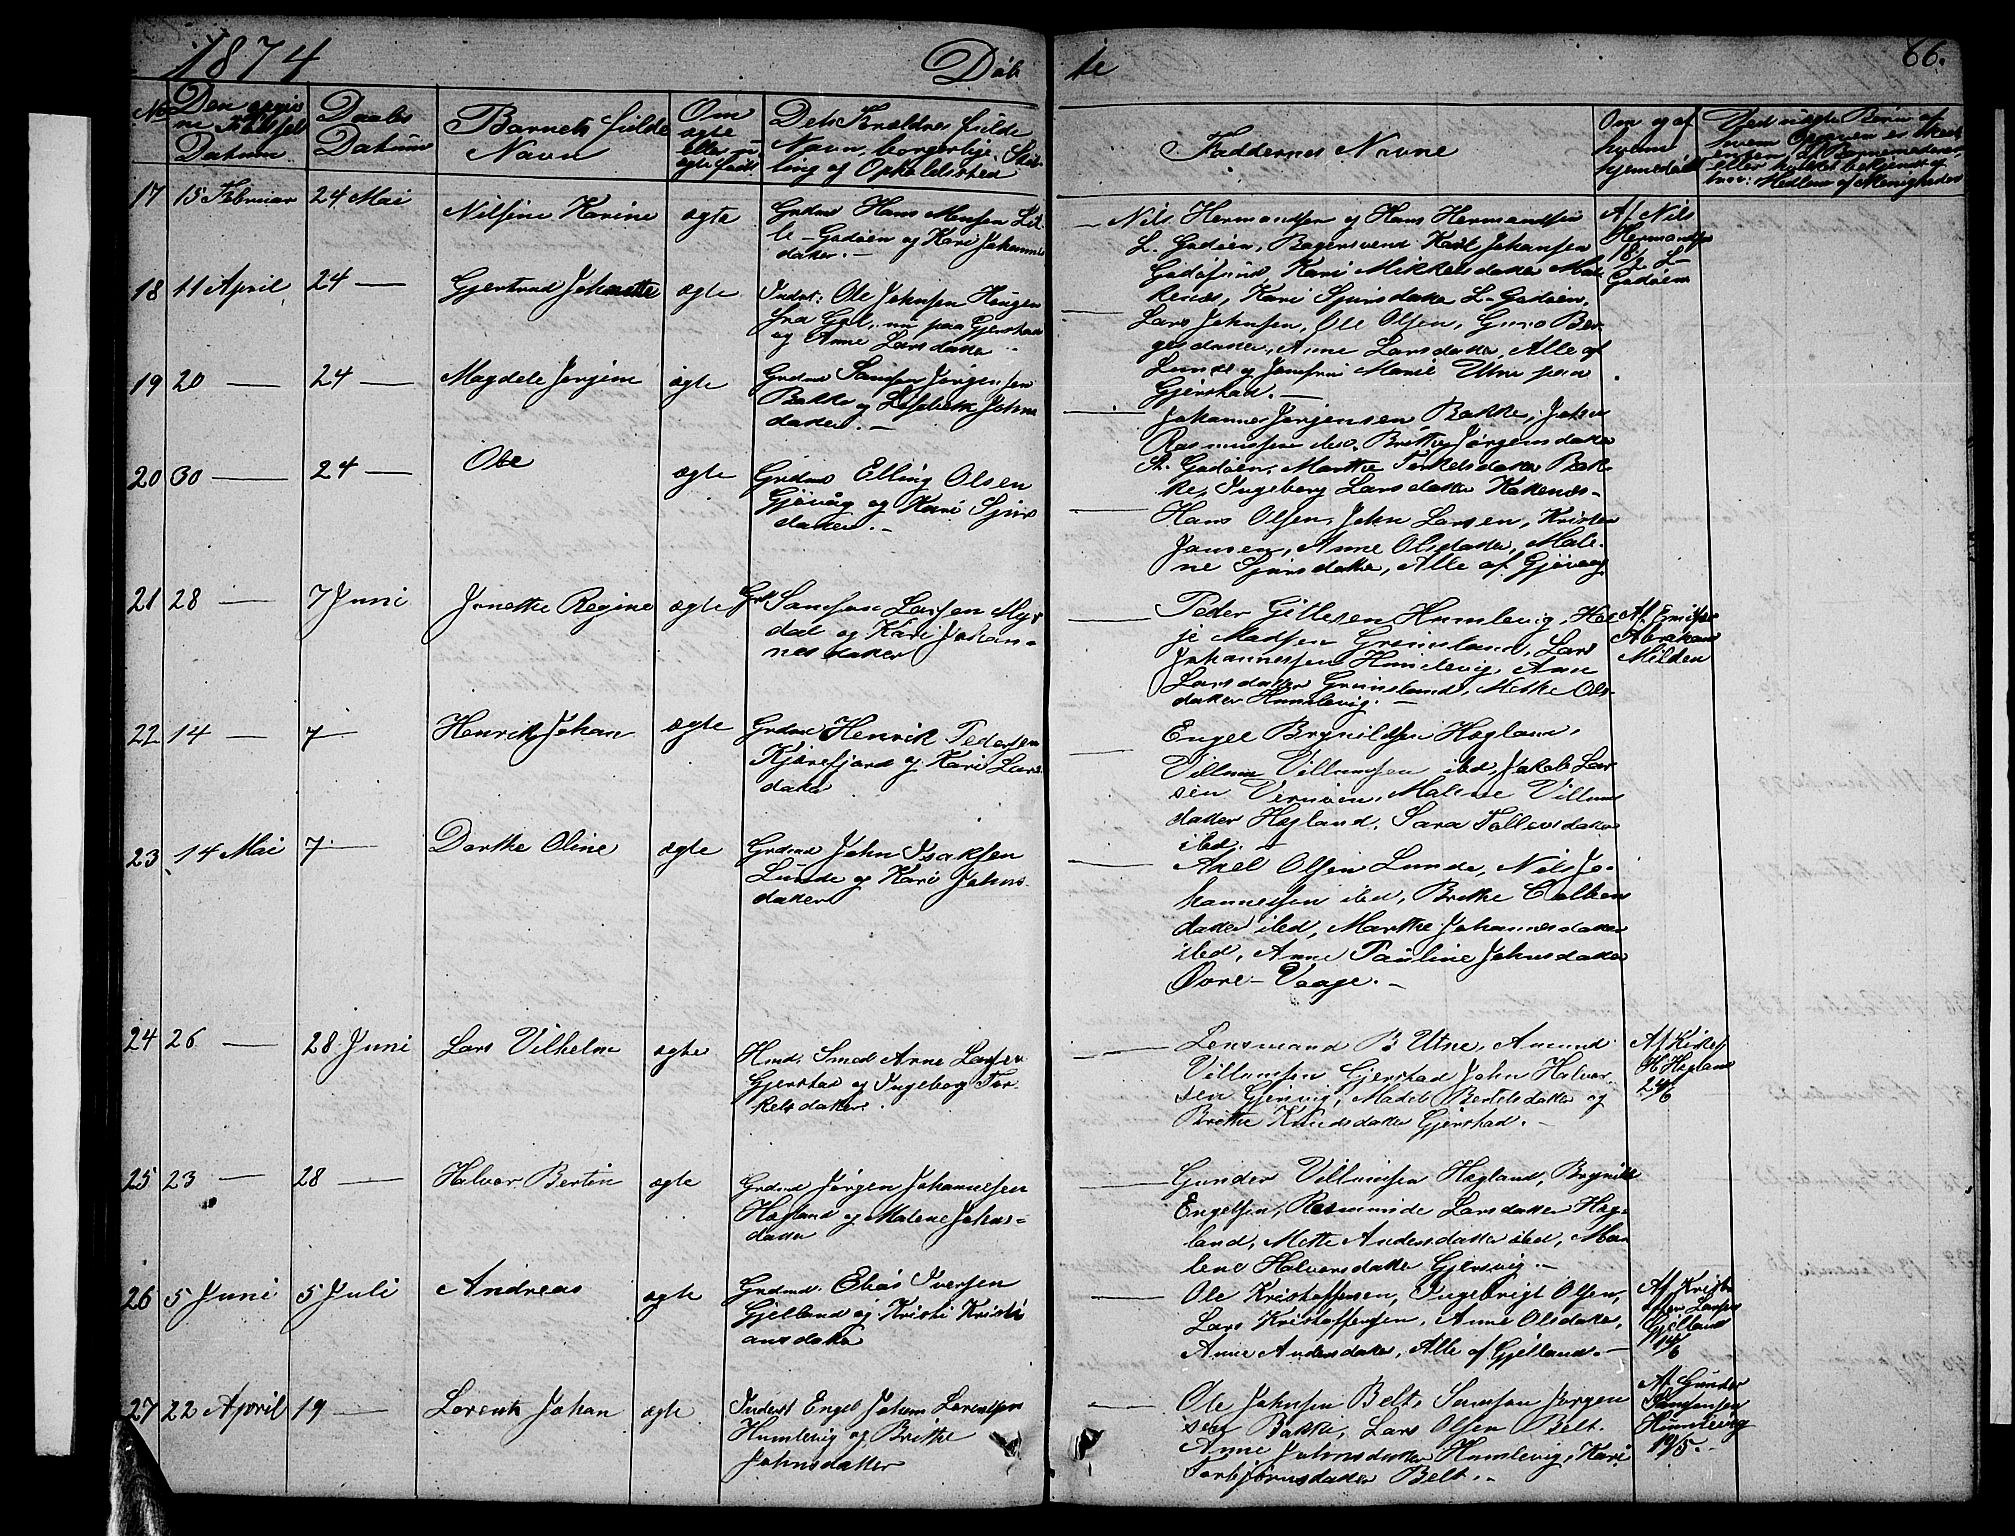 1874
Døb
te
66.
No
Den opgiv
ne Fødsels
Datum
Daabs
Datum
Barnets fulde
Navn
Om
ægte
eller u-
ægte født
Dets Forældres fulde
Navn, borgerlige Stil-
ling og Opholdssted
Faddernes Navne
Om og af
hvem
hjemedøbt
Ved uægte Børn af
17 15 Februar 24 Mai Nilsine Karine ægte
Grdmd Hans Monsen Lil-
le-Godøen og Kari Johannes
datter.-
Nils Hermandsen og Hans Hermandsen
L. Godøen, Bagersvend Karl Johansen
Godøsund, Kari Mikkelsdatter
Kari Sjursdatter L-Godøen.
Af Nils
Hermandsen
L-
Godøen
18 11 April 24 — Gjertrud Johanette ægte
Inderst: Ole Johnsen Haugen
fra Gol, nu paa Gjerstad
og Anne Larsdatter
Lars Johnsen, Ole Olsen, Guro Ber-
gesdatter, Anne Larsdatter, Alle af
Lunde og Jomfru Marie Utne paa
Gjerstad.-
19 20 — 24 — Magdele Jørgine ægte
Grdmd Samson Jørgensen
Bakke og Lisbeth Johns
datter.-
Johannes Jørgensen Bakke, John
Rasmussen ibd, Brithe Jørgensdatter
St. Godøen, Marthe Terkelsdatter Bak-
ke, Ingeborg Larsdatter Kokenæs-
20 30 — 24 — Ole ægte
Grdmd Elling Olsen
Gjøvåg og Kari Sjurs
datter.-
Hans Olsen, John Larsen, Kristen
Jansen, Anne Olsdatter, Male-
ne Sjursdatter, Alle af Gjøvaag
21 28 — 7 Juni Jonette Regine ægte
Grd Samson Larsen Myr
dal og Kari Johan-
nesdatter
Peder Gitlesen Humlevig,
Madsen Grimsland, Lars
Johannessen Humlevig, Ane
Larsdatter Grimsland, Mette Ols-
datter Humlevig.-
Abraham
Milden
22 14 — 7 — Henrik Johan ægte
Grdmd Henrik Pedersen
Kjørefjord og Kari Lars
datter
Engel Brynildsen Hogland,
Villum Villumsen ibd, Jakob Lar-
sen Vernøen, Malene Villums
datter Hogland, Sara Tollevsdatter
ibd.-
23 14 Mai 7 — Dorthe Oline ægte
Grdmd John Isaksen
Lunde og Kari Johns-
datter
Axel Olsen Lunde, Nils Jo-
hannessen ibd, Brithe
datter ibd, Marthe Johannesdatter
ibd, Anne Pauline Johnsdatter
Øvre-Vaage.-
24 26 — 28 Juni Lars Vilhelm ægte
Hmd. Smed Arne Larsen
Gjerstad og Ingeborg Ter-
kelsdatter.
Lensmand B Utne, Amund
Villumsen Gjerstad John Halvor-
sen Gjersvig, Madel Bertelsdatter og
Brithe Knudsdatter Gjerstad.-
H Hogland
24/6
25 23 — 28 — Halvor Bertin ægte
Grdmd Jørgen Johannesen
Hogland og Malene Johns-
datter
Gunder Villumsen Hogland, Brynild
Engelsen, Rasminde Larsdatter Hog-
land, Mette Andersdatter ibd, Ma-
lene Halvorsdatter Gjersvig.-
26 5 Juni 5 Juli Andreas ægte
Grdmd. Elias Iversen
Gjelland og Kristi Kristi
ansdatter
Ole Kristoffersen, Ingebrigt Olsen,
Lars Kristoffersen, Anne Olsdatter,
Anne Andersdatter, Alle af Gjelland.-
Af Krist
offer Larsen
Gjelland
14/6
27 22 April 19 — Lorents Johan ægte
Inderst Engel Johan Lorentsen
Humlevig og Brithe
Johnsdatter
Ole Johnsen Belt, Samson Jørgen
sen Bakke, Lars Olsen Belt.
Anne Johnsdatter Humlevig, Kari
Torbjørnsdatter Belt.-
Af Gunder
Samsonsen
Humlevig
19/5.-